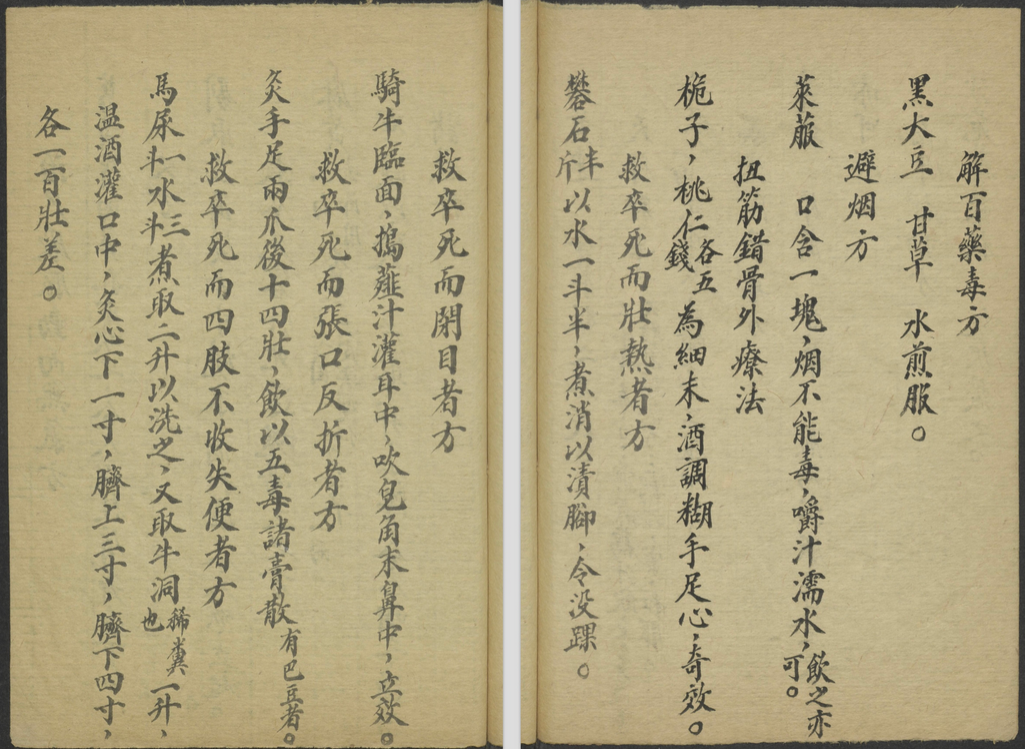 解百藥毒方
黑大豆　甘草　水煎服。
避烟方
萊菔　口含一塊，烟不能毒，嚼汁濡水，飲之亦可。
扭筋錯骨外療法
桅子，桃仁各五錢為細末，酒調糊手足心，奇效。
救卒死而壯熱者方
礬石半斤以水一斗半，煮消以漬腳，令没踝。
救卒死而閉目者方
騎牛臨面，搗薤汁灌耳中，吹皂角末鼻中，立效。
救卒死而張口反折者方
灸手足兩爪後十四壯，飲以五毒諸膏散有巴豆者。
救卒死而四肢不收失便者方
馬尿一斗水三斗煮取二升以洗之，又取牛洞稀糞也一升，
温酒灌口中，灸心下一寸，臍上三寸，臍下四寸，
各一百壯差。